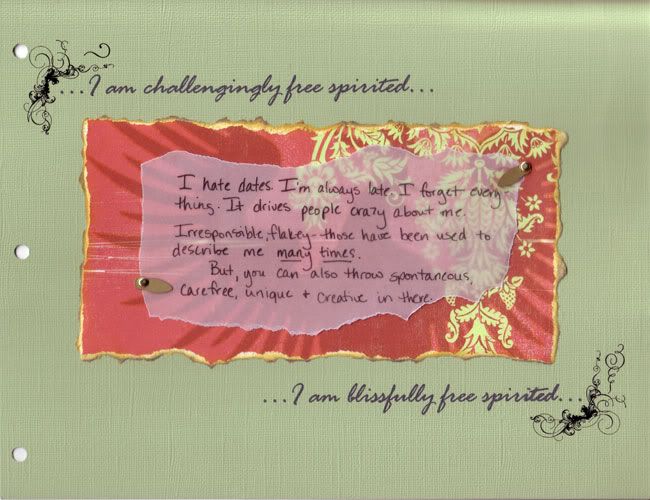 ...I am challengingly free spirited...
I hate dates. I'm always late. I forget every-
thing. It drives people crazy about me.
Irresponsible, flakey - those have been used to
describe me many times.
But, you can also throw spontaneous,
carefree, unique + creative in there.
...I am blissfully free spirited...